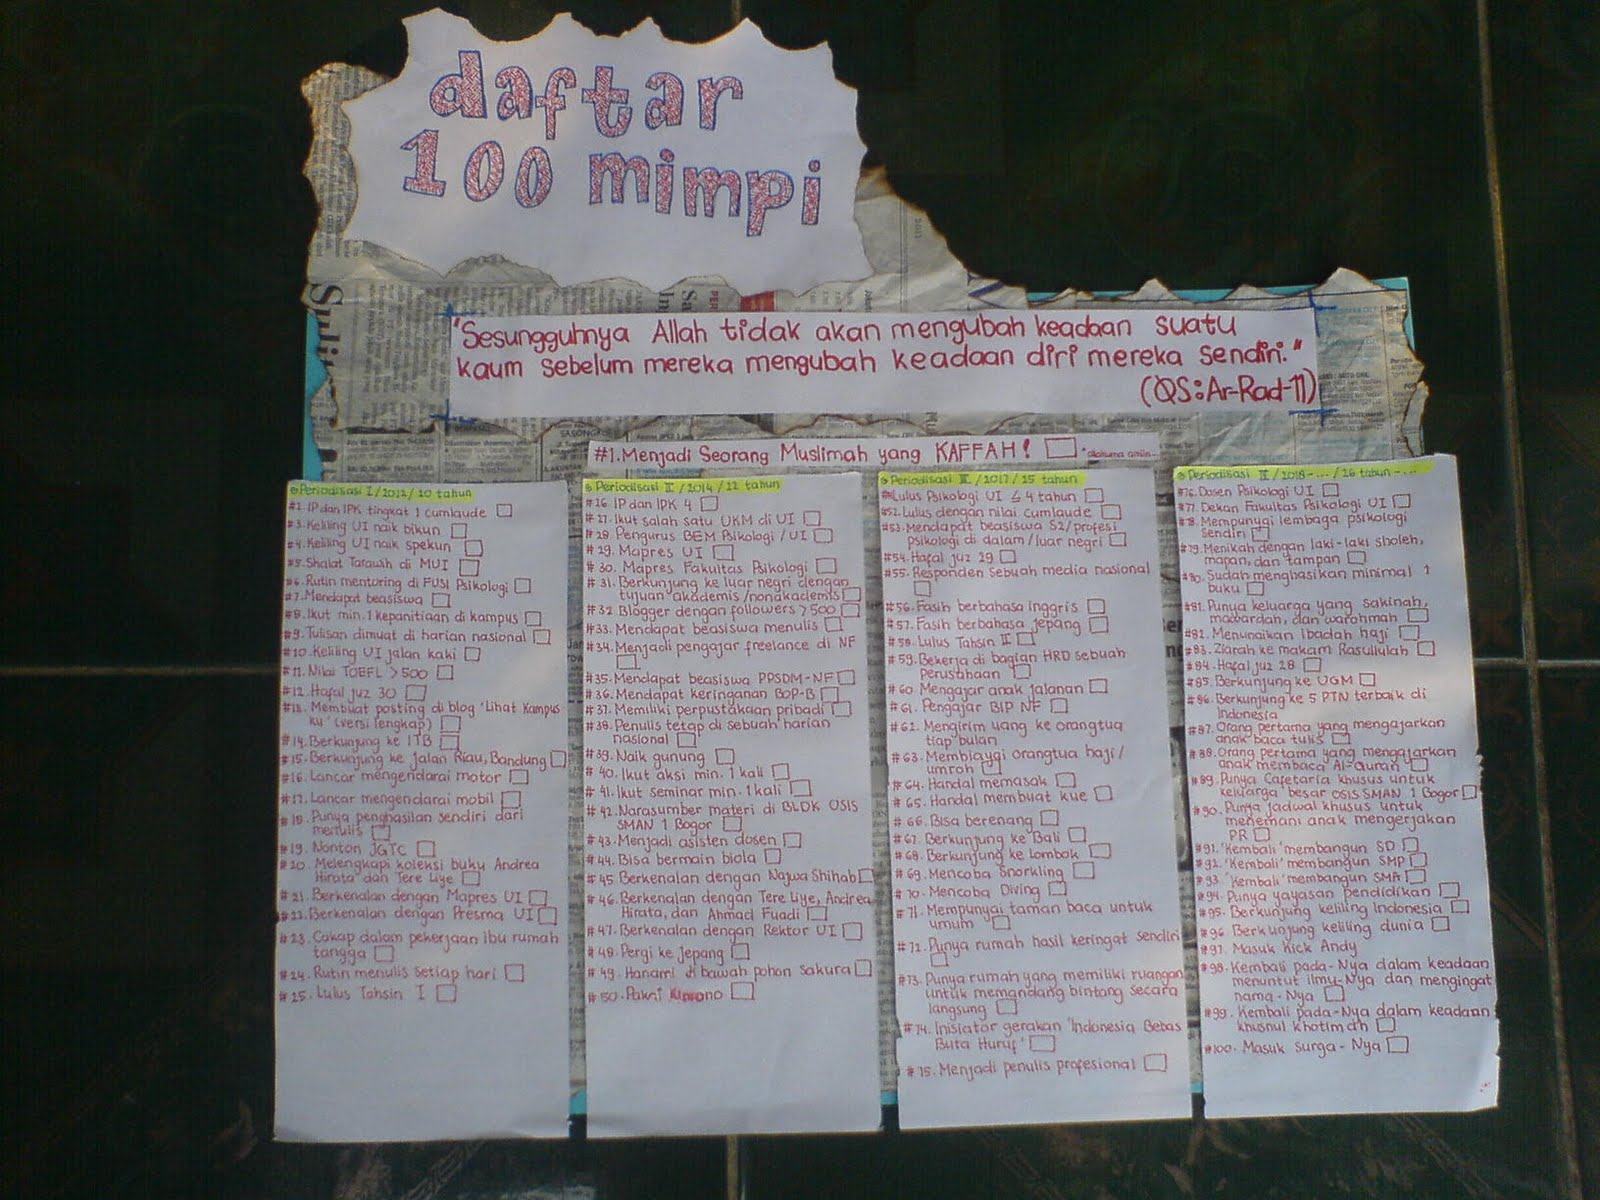 daftar
100 mimpi
"Sesungguhnya Allah tidak akan mengubah keadaan suatu
kaum sebelum mereka mengubah keadaan diri mereka sendiri."
(QS:Ar-Rad-11)
#1.Menjadi Seorang Muslimah yang KAFFAH!
Periodisasi I/2012/20 tahun
#2. IP dan IPK tingkat 1 cumlaude
#3. Keliling UI naik bikun
#4. Keliling UI naik spekun
#5. Shalat Tarawih di MUI
#6. Rutin mentoring di FUSI Psikologi
#7. Mendapat beasiswa
#8. Ikut min. 1 kepanitiaan di kampus
#9. Tulisan dimuat di harian nasional
#10. Keliling UI jalan kaki
#11. Nilai TOEFL > 500
#12. Hafal juz 30
#13. Membuat posting di blog 'Lihat Kampus
ku' (versi lengkap)
#14. Berkunjung ke ITB
#15. Berkunjung ke jalan Riau, Bandung
#16. Lancar mengendarai motor
#17. Lancar mengendarai mobil
#18. Punya penghasilan sendiri dari
menulis
#19. Nonton JGTC
#20. Melengkapi koleksi buku Andrea
Hirata dan Tere Liye
#21. Berkenalan dengan Mapres UI
#22. Berkenalan dengan Presma UI
#23. Cakap dalam pekerjaan ibu rumah
tangga
#24. Rutin menulis setiap hari
#25. Lulus Tahsin I
Periodisasi II/2014/22 tahun
#26. IP dan IPK 4
#27. Ikut salah satu UKM di UI
#28. Pengurus BEM Psikologi/UI
#29. Mapres UI
#30. Mapres Fakultas Psikologi
#31. Berkunjung ke luar negri dengan
tujuan akademis/nonakademis
#32. Blogger dengan followers > 500
#33. Mendapat beasiswa menulis
#34. Menjadi pengajar freelance di NF
#35. Mendapat beasiswa PPSDM-NF
#36. Mendapat keringanan BOP-B
#37. Memiliki perpustakaan pribadi
#38. Penulis tetap di sebuah harian
nasional
#39. Naik gunung
#40. Ikut aksi min. 1 kali
#41. Ikut seminar min. 1 kali
#42. Narasumber materi di BLDK OSIS
SMAN 1 Bogor
#43. Menjadi asisten dosen
#44. Bisa bermain biola
#45 Berkenalan dengan Najwa Shihab
#46. Berkenalan dengan Tere Liye, Andrea
Hirata, dan Ahmad Fuadi
#47. Berkenalan dengan Rektor UI
#48. Pergi ke Jepang
#49. Hanami di bawah pohon Sakura
#50. Pakai Kimono
Periodisasi III/2017/25 tahun
Lulus Psikologi UI ≤ 4 tahun
#52. Lulus dengan nilai cumlaude
#53. Mendapat beasiswa S2/profesi
psikologi di dalam/luar negri
#54. Hafal juz 29
#55. Responden sebuah media nasional
#56. Fasih berbahasa inggris
#57. Fasih berbahasa jepang
#58. Lulus Tahsin II
#59. Bekerja di bagian HRD sebuah
Perusahaan
#60. Mengajar anak jalanan
#61. Pengajar BIP NF
#62. Mengirim uang ke orangtua
tiap bulan
#63. Membiayai orangtua haji/
umroh
#64. Handal memasak
#65. Handal membuat kue
#66. Bisa berenang
#67. Berkunjung ke Bali
#68. Berkunjung ke Lombok
#69. Mencoba Snorkling
#70. Mencoba Diving
#71. Mempunyai taman baca untuk
umum
#72. Punya rumah hasil keringat sendiri
#73. Punya rumah yang memiliki ruangan
untuk memandang bintang secara
langsung
#74. Inisiator gerakan 'Indonesia Bebas
Buta Huruf'
#75. Menjadi penulis profesional
Periodisasi IV/2018-.../26 tahun-...
#76. Dosen Psikologi UI
#77. Dekan Fakultas Psikologi UI
#78. Mempunyai lembaga psikologi
sendiri
#79. Menikah dengan laki-laki sholeh,
mapan, dan tampan
#80. Sudah menghasikan minimal 1
buku
#81. Punya keluarga yang sakinah,
mawardah, dan warohmah
#82. Menunaikan Ibadah haji
#83. Ziarah ke makam Rasullulah
#84. Hafal juz 28
#85. Berkunjung ke UGM
#86. Berkunjung ke 5 PTN terbaik di
Indonesia
#87. Orang pertama yang mengajarkan
anak baca tulis
#88. Orang pertama yang mengajarkan
anak membaca Al-Quran
#89. Punya Cafetaria khusus untuk
keluarga besar OSIS SMAN 1 Bogor
#90. Punya jadwal khusus untuk
menemani anak mengerjakan
PR
#91. 'Kembali' membangun SD
#92. 'Kembali' membangun SMP
#93. 'Kembali' membangun SMA
#94. Punya yayasan pendidikan
#95. Berkunjung keliling Indonesia
#96. Berkunjung keliling dunia
#97. Masuk Kick Andy
#98. Kembali pada-Nya dalam keadaan
menuntut ilmu-Nya dan mengingat
nama-Nya
#99. Kembali pada-Nya dalam keadaan
khusnul khotimah
#100. Masuk Surga-Nya